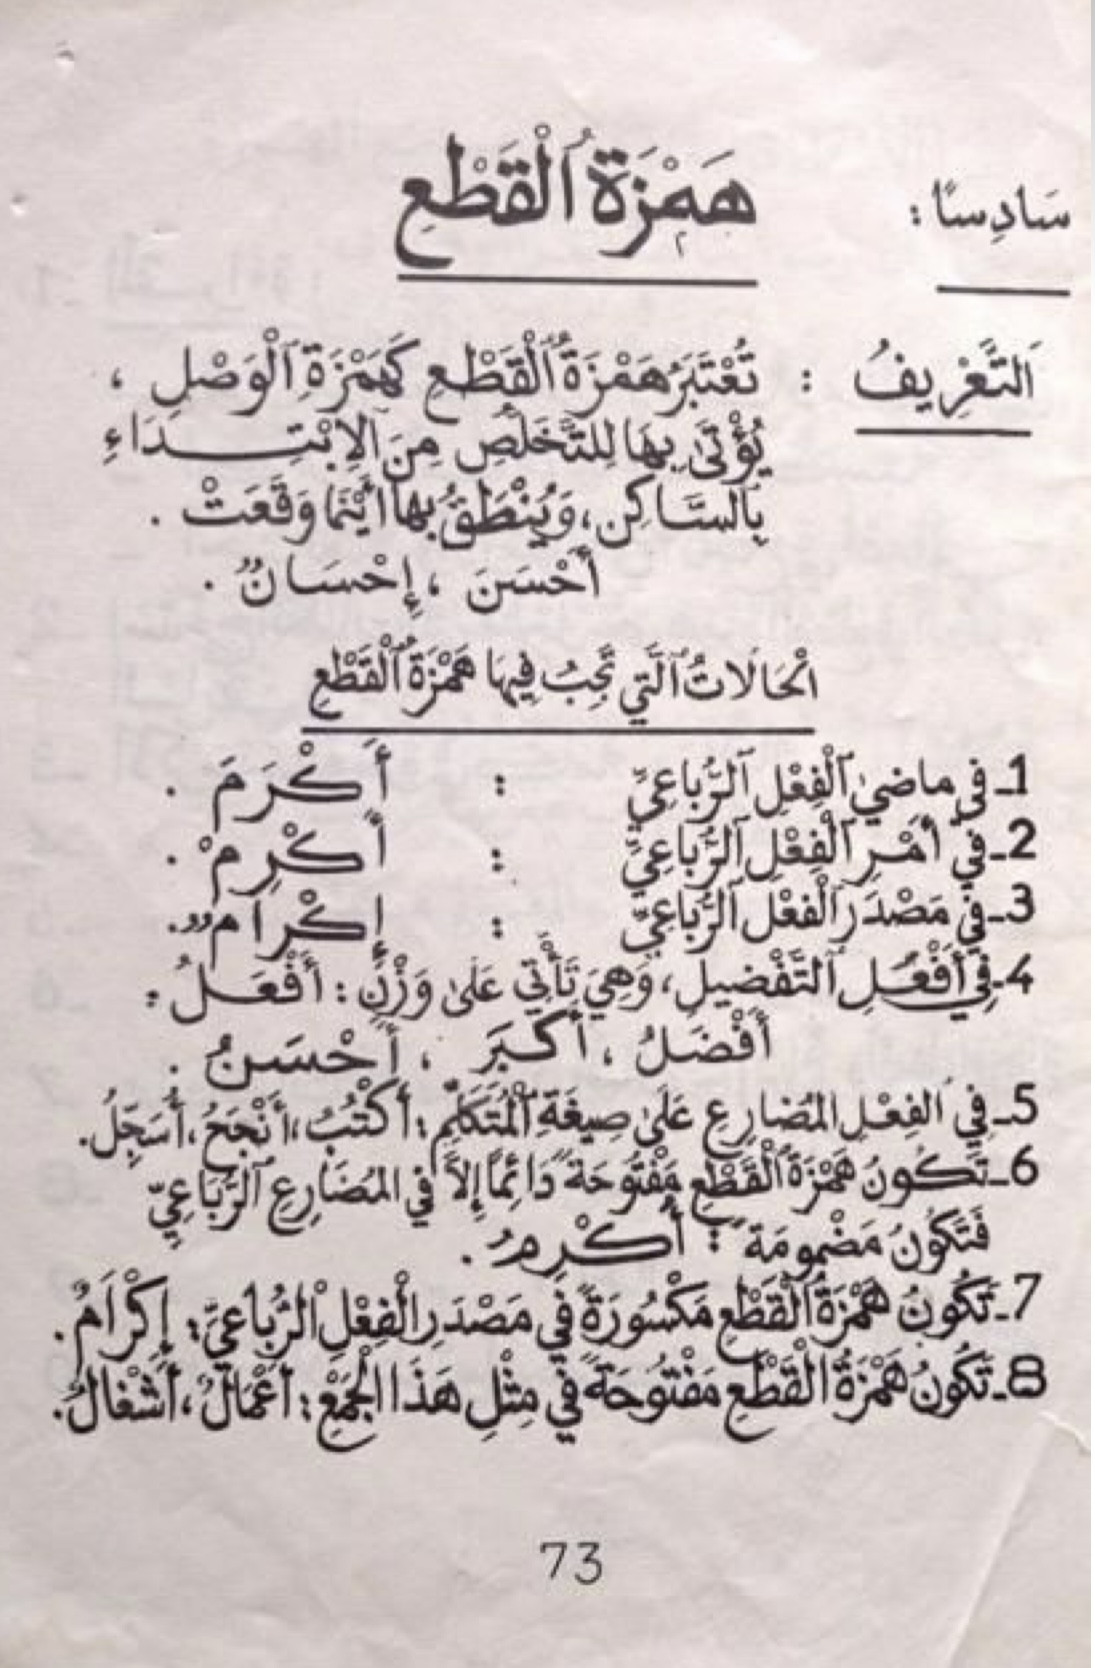 سَادِسًا : هَمْزَةُ ٱلْقَطْعِ
اَلتَّعْرِيفُ : تُعْتَبَرُ هَمْزَةُ ٱلْقَطْعِ كَهَمْزَةِ ٱلْوَصْلِ ،
يُؤْتَىٰ بِهَا لِلتَّخَلُّصِ مِنَ الِابْتِدَاءِ
بِالسَّاكِنِ، وَيُنْطَقُ بِهَا أَيْنَمَا وَقَعَتْ .
أَحْسَنَ ، إِحْسَانٌ .
اَلْحَالَاتُ ٱلَّتِي تَجِبُ فِيهَا هَمْزَةُ ٱلْقَطْعِ
1ـ فِي مَاضِي ٱلْفِعْلِ ٱلرُّبَاعِيِّ : أَكْرَمَ .
2ـ فِي أَمْرِ ٱلْفِعْلِ ٱلرُّبَاعِيِّ : أَكْرِمْ .
3ـ فِي مَصْدَرِ ٱلْفِعْلِ ٱلرُّبَاعِيِّ : إِكْرَامٌ .
4ـ فِي أَفْعَلِ ٱلتَّفْضِيلِ، وَهِيَ تَأْتِي عَلَىٰ وَزْنِ : أَفْعَلُ :
أَفْضَلُ ، أَكْبَرَ ، أَحْسَنُ .
5ـ فِي الفِعْلِ المُضَارِعِ عَلَىٰ صِيغَةِ ٱلْمُتَكَلِّمِ : أَكْتُبُ، أَنْجَحُ، أُسَجِّلُ.
6ـ تَكُونُ هَمْزَةُ ٱلْقَطْعِ مَفْتُوحَةً دَائِمًا إِلَّا فِي المُضَارِعِ ٱلرُّبَاعِيِّ
فَتَكُونُ مَضْمُومَةً : أُكْرِمُ .
7ـ تَكُونُ هَمْزَةُ ٱلْقَطْعِ مَكْسُورَةً فِي مَصْدَرِ ٱلْفِعْلِ ٱلرُّبَاعِيِّ : إِكْرَامٌ .
8ـ تَكُونُ هَمْزَةُ ٱلْقَطْعِ مَفْتُوحَةً فِي مِثْلِ هَذَا ٱلْجَمْعِ : أَعْمَالٌ، أَشْغَالٌ.
73